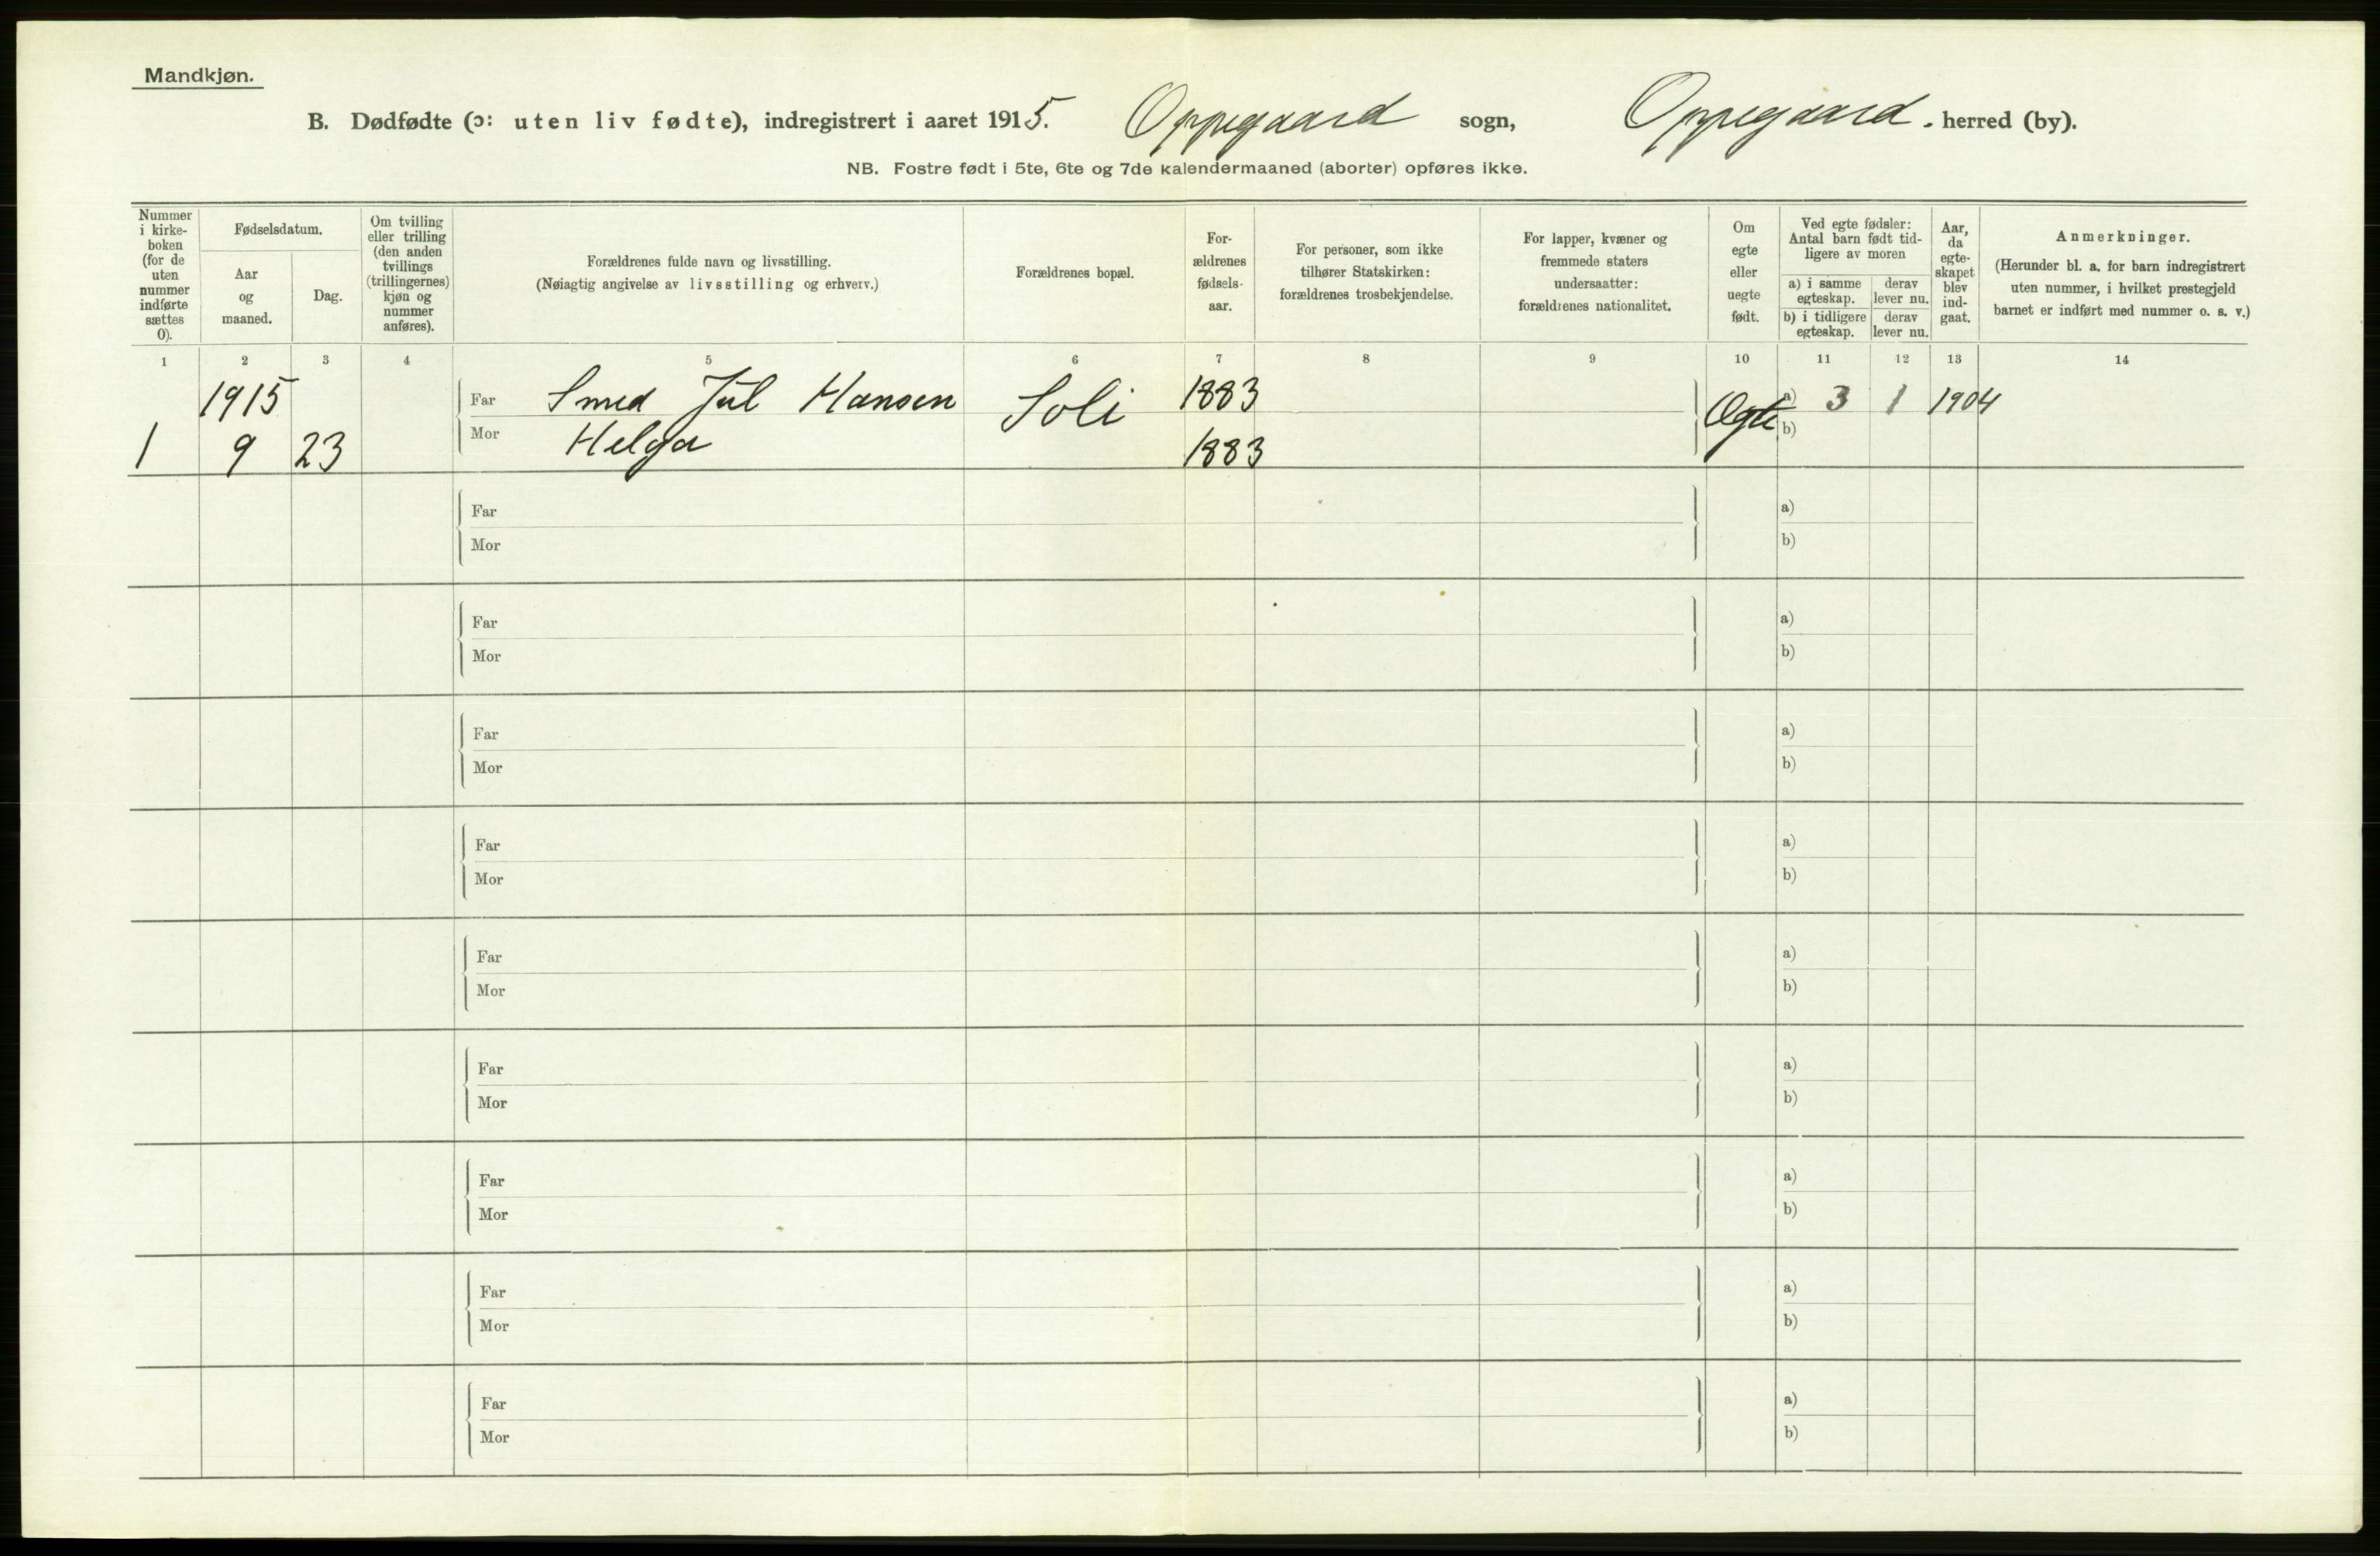 Mandkjøn.
B. Dødfødte (ɔ: uten liv fødte), indregistrert i aaret 1915. Oppegaard sogn, Oppegaard. herred (by).
NB. Fostre født i 5te, 6te og 7de kalendermaaned (aborter) opføres ikke.
Nummer
i kirke-
boken
(for de
uten
nummer
indførte
sættes
0).
Fødselsdatum.
Aar
og
maaned.
Dag.
Om tvilling
eller trilling
(den anden
tvillings
(trillingernes)
kjøn og
nummer
anføres).
Forældrenes fulde navn og livsstilling.
(Nøiagtig angivelse av livsstilling og erhverv.)
Forældrenes bopæl.
For-
ældrenes
fødsels-
aar.
For personer, som ikke
tilhører Statskirken:
forældrenes trosbekjendelse.
For lapper, kvæner og
fremmede staters
undersaatter:
forældrenes nationalitet.
Om
egte
eller
uegte
født.
Ved egte fødsler:
Antal barn født tid-
ligere av moren
a) i samme
egteskap.
derav
lever nu.
b) i tidligere
egteskap.
derav
lever nu.
Aar,
da
egte-
skapet
blev
ind-
gaat.
Anmerkninger.
(Herunder bl. a. for barn indregistrert
uten nummer, i hvilket prestegjeld
barnet er indført med nummer o. s. v.)
1 2 3 4 5 6 7 8 9 10 11 12 13 14
1915 Far Smed Jul Hansen Soli 1883 Egte a) 3 1 1904
1 9 23 Mor Helga 1883 b)
Far a)
Mor b)
Far a)
Mor b)
Far a)
Mor b)
Far a)
Mor b)
Far a)
Mor b)
Far a)
Mor b)
Far a)
Mor b)
Far a)
Mor b)
Far a)
Mor b)